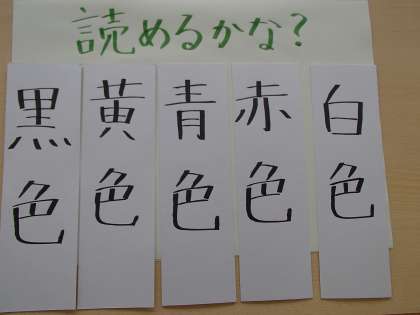 読めるかな?
黒色
黄色
青色
赤色
白色